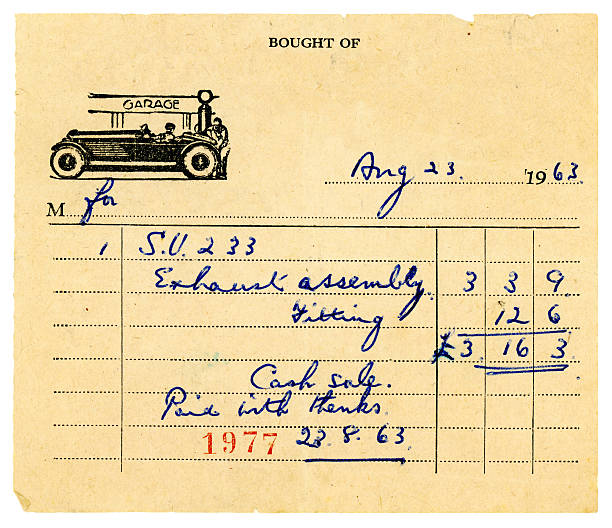 BOUGHT OF
GARAGE
Aug 23. 1963.
M for
1 S.U. 233
Exhaust assembly. 3 3 9
Fitting 12 6
£3 16 3
Cash sale.
Paid with thanks
1977 23.8.63